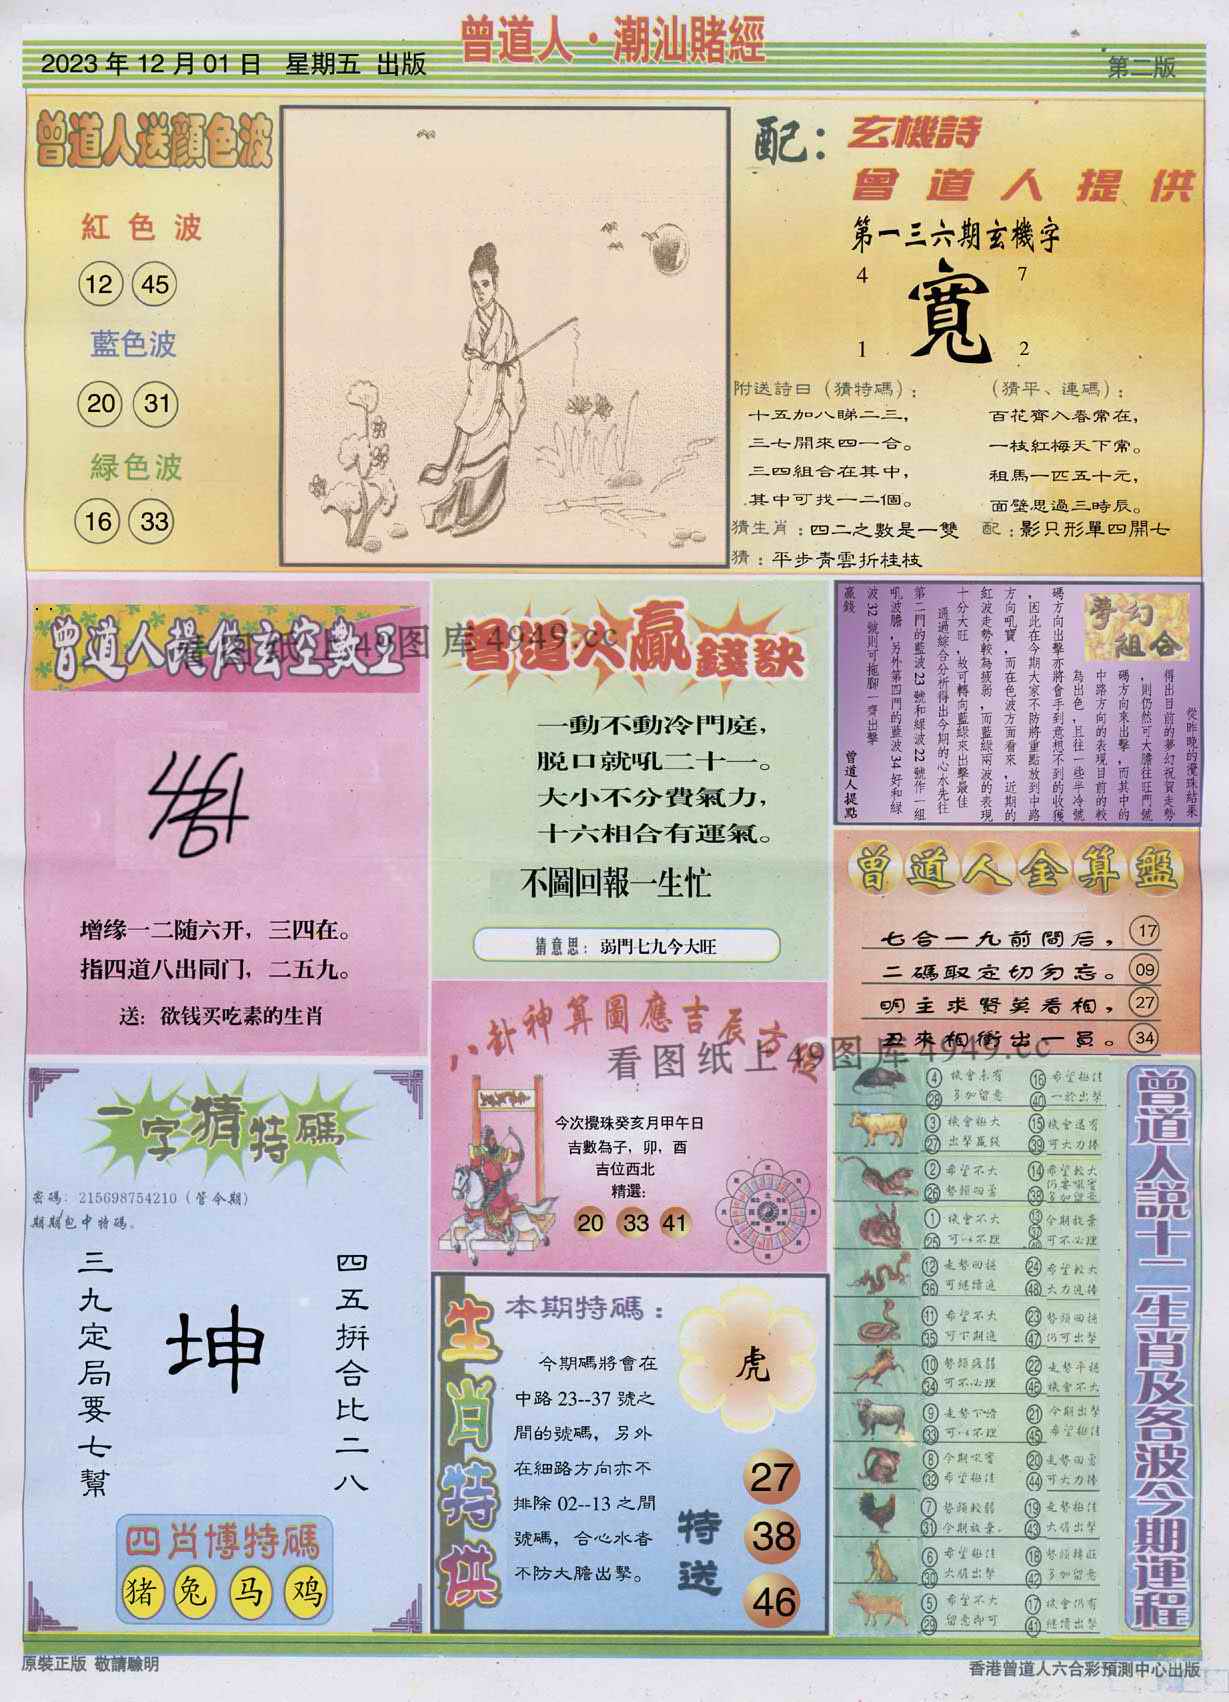 曾道人·潮汕賭經
2023年12月01日 星期五 出版
第二版
曾道人送顏色波
紅色波
12 45
藍色波
20 31
緑色波
16 33
配：玄機詩
曾道人提供
第一三六期玄機字
4 7
寬
1 2
附送詩曰（猜特碼）：
十五加八睇二三，
三七開來四一合。
三四組合在其中，
其中可找一二個。
（猜平、連碼）：
百花齊入春常在，
一枝紅梅天下常。
租馬一匹五十元，
面壁思過三時辰。
猜生肖：四二之數是一雙
配：影只形單四開七
猜：平步青雲折桂枝
曾道人提供玄空數王
看图纸上49图库4949.cc
增缘一二随六开，三四在。
指四道八出同门，二五九。
送：欲钱买吃素的生肖
曾道人贏錢訣
一動不動冷門庭，
脱口就吼二十一。
大小不分費氣力，
十六相合有運氣。
不圖回報一生忙
猜意思：弱門七九今大旺
夢幻組合
從昨晚的攪珠結果
得出目前的夢幻祝賀走勢
，則仍然可大膽往旺門號
碼方向來出擊，而其中的
中路方向的表現目前的較
為出色，且往一些半冷號
碼方向出擊亦將會手到意想不到的收獲
，因此在今期大家不防將重點放到中路
方向吼寶，而在色波方面看來，近期的
紅波走勢較為疲弱，而藍綠兩波的表現
十分大旺，故可轉向藍綠來出擊最佳
通過綜合分析得出今期的心水先往
第二門的藍波23號和綠波22號作一組
吼波膽，另外第四門的藍波34好和綠
波32號則可拖腳一齊出擊
贏錢
曾道人提點
曾道人金算盤
七合一九前間后， 17
二碼取定切勿忘。 09
明主求賢英看相， 27
丑來相衝出一員。 34
八卦神算圖應吉辰方位
看图纸上49图库4949.cc
今次攪珠癸亥月甲午日
吉數為子，卯，酉
吉位西北
精選：
20 33 41
一字猜特碼
密碼：215698754210（管今期）
期期包中特碼。
四五拼合比二八
坤
三九定局要七幫
四肖博特碼
猪 兔 马 鸡
生肖特供
本期特碼：
虎
今期碼將會在
中路23--37號之
間的號碼，另外
在細路方向亦不
排除02--13之間
號碼，合心水者
不防大膽出擊。
特送
27
38
46
曾道人説十二生肖及各波今期運程
4 機會未有 16 希望極佳
28 多加留意 40 一於出擊
3 機會極大 15 機會還有
27 出擊贏錢 39 可大力捧
2 希望不大 14 希望較大
26 勢頭回勇 38 多加留意
1 機會不大 13 今期放棄
25 可以不理 37 可不必理
12 走勢回穩 24 希望較大
36 可繼續追 48 大力追捧
11 希望不大 23 勢頭回穩
35 可下期追 47 仍可出擊
10 勢頭疲弱 22 走勢平穩
34 可不必理 46 機會不大
9 走勢下滑 21 今期出擊
33 可以不理 45 希望極佳
8 今期吼實 20 走勢回勇
32 希望極佳 44 可大力捧
7 勢頭較弱 19 走勢極佳
31 今期放棄. 43 大膽出擊
6 希望極佳 18 勢頭轉旺
30 大膽出擊 42 多加留意
5 希望不大 17 機會仍有
29 留意即可 41 繼續出擊
原裝正版 敬請驗明
香港曾道人六合彩預測中心出版